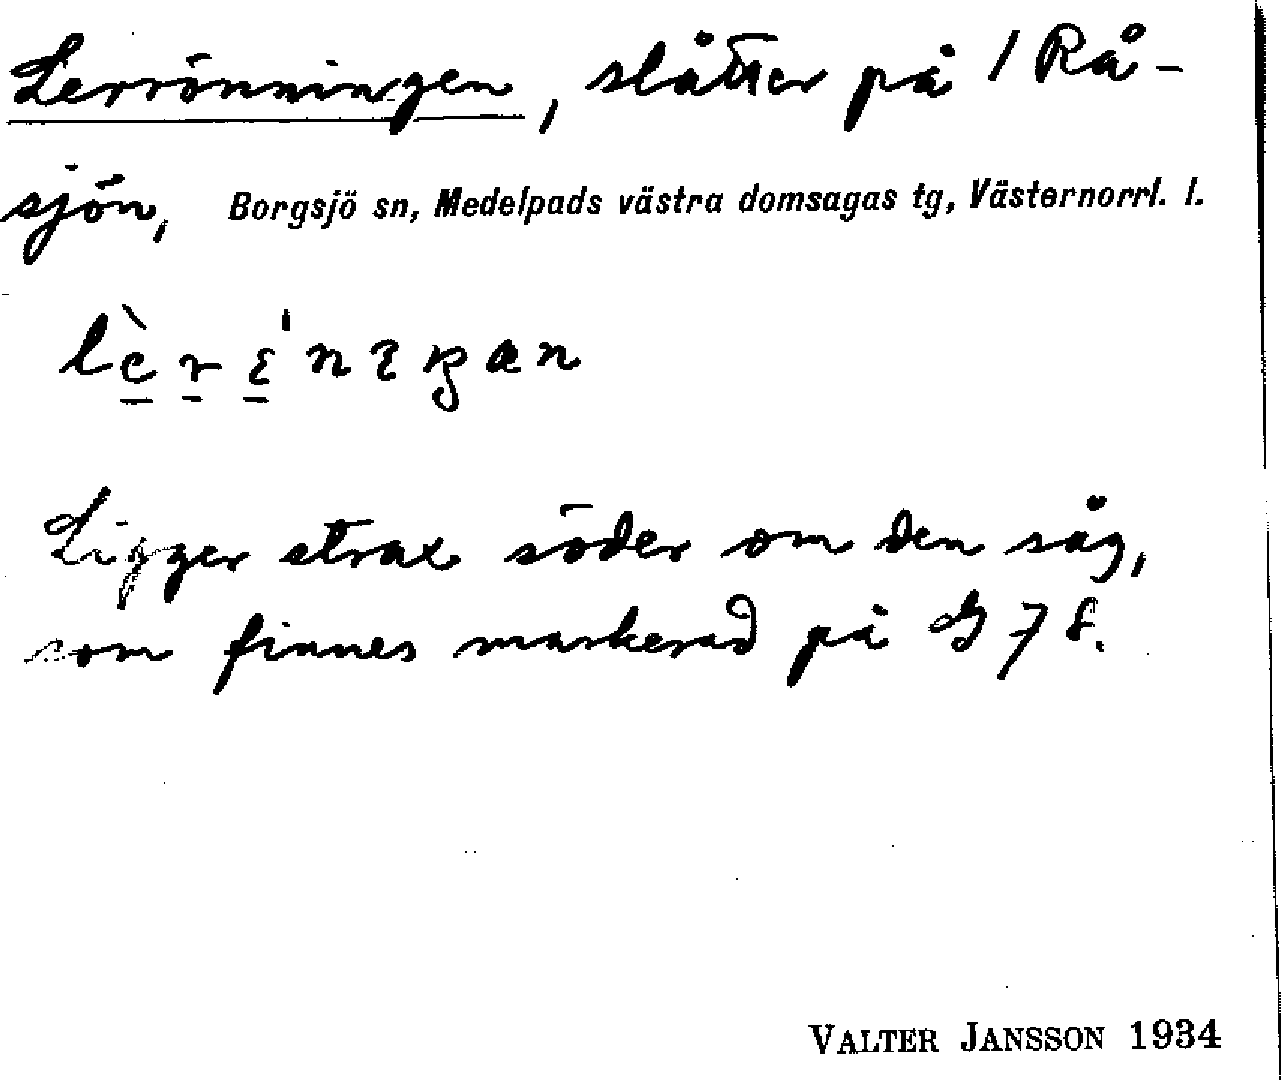 Lerrönningen, slåtter på 1 Rå-
sjön, Borgsjö sn, Medelpads västra domsagas tg, Västernorrl. l.
Ligger strax söder om den såg,
som finnes markerad på G 7 f.
VALTER JANSSON 1934